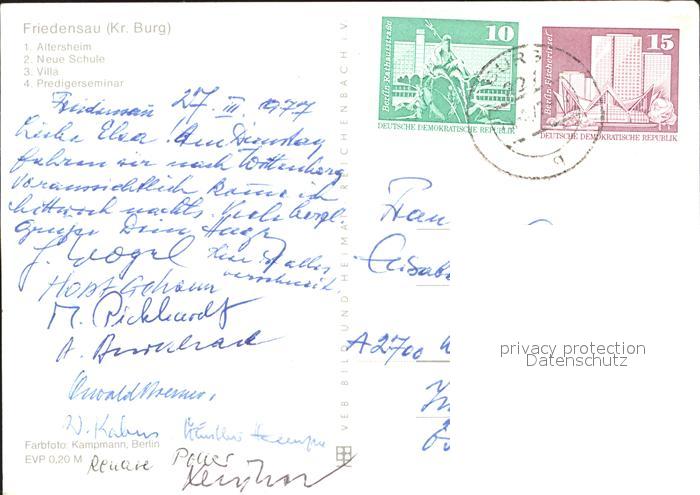 Friedensau (Kr. Burg)
1. Altersheim
2. Neue Schule
3. Villa
4. Predigerseminar
Friedensau 27. III. 1977
Liebe Elsa. Am Dienstag
fahren wir nach Wittenberg
Voraussichtlich komme ich
Mittwoch nachts. Viele herzl.
Grüsse Dein
Hier ist alles
verschneit.
M. Pickhardt
Oswald Bremer,
W. Kabus
Renate
Farbfoto: Kampmann, Berlin
EVP 0,20 M
VEB BILD UND HEIMAT REICHENBACH i.V.
Berlin Rathausstraße
10
DEUTSCHE DEMOKRATISCHE REPUBLIK
Berlin Fischerinsel
15
DEUTSCHE DEMOKRATISCHE REPUBLIK
BURG
Frau
Elisab
A 2700 W
privacy protection
Datenschutz